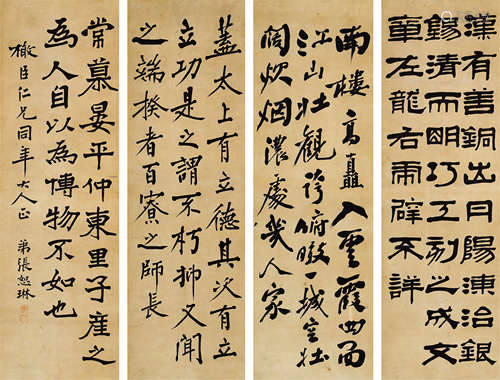 漢有善銅出丹陽湅治銀
錫清而明巧工刻之成文
章左龍右虎辟不詳
南樓高矗入雲霞四面
江山壯觀誇俯瞰一城空壯
闊炊烟濃處幾人家
蓋太上有立德其次有立
立功是之謂不朽抑又聞
之端揆者百寮之師長
常慕晏平仲東里子產之
為人自以為博物不如也
臣仁兄同年大人正
弟張